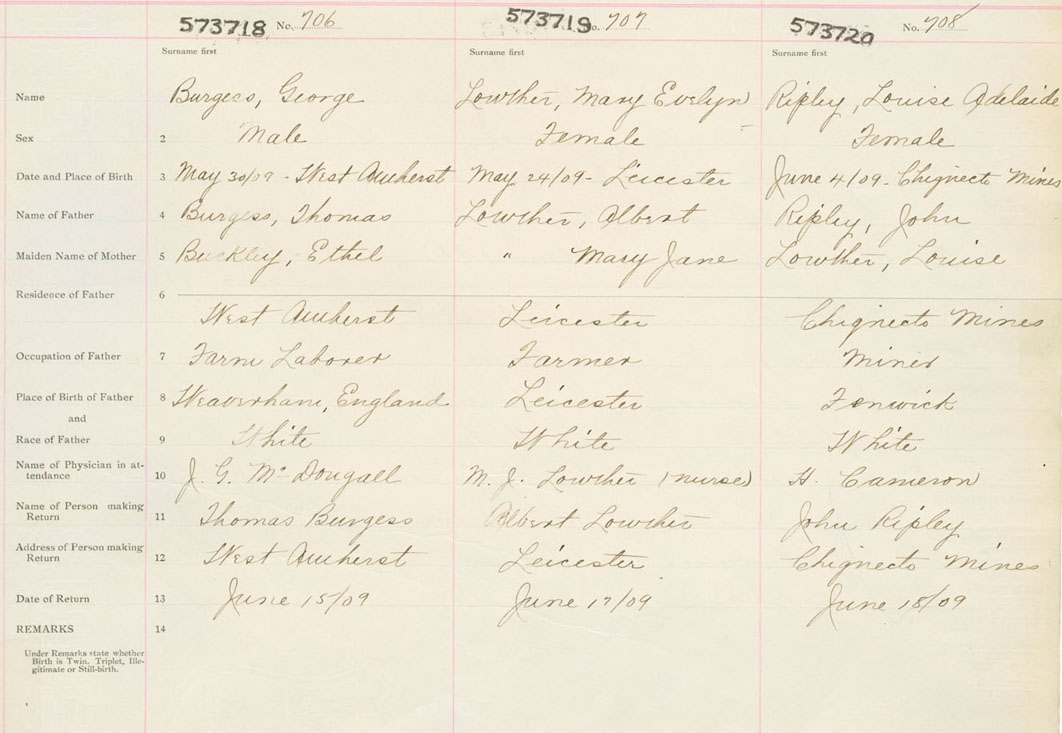 573718 No. 706 573719 No. 707 573720 No. 708
Surname first Surname first Surname first
Name Burgess, George Lowther, Mary Evelyn Ripley, Louise Adelaide
Sex 2 Male Female Female
Date and Place of Birth 3 May 30/09 - West Amherst May 24/09 - Leicester June 4/09 - Chignecto Mines
Name of Father 4 Burgess, Thomas Lowther, Albert Ripley, John
Maiden Name of Mother 5 Buckley, Ethel " Mary Jane Lowther, Louise
Residence of Father 6
West Amherst Leicester Chignecto Mines
Occupation of Father 7 Farm Laborer Farmer Miner
Place of Birth of Father 8 Weaverham, England Leicester Fenwick
and
Race of Father 9 White White White
Name of Physician in at-
tendance 10 J. G. McDougall M. J. Lowther (nurse) H. Cameron
Name of Person making
Return 11 Thomas Burgess Albert Lowther John Ripley
Address of Person making
Return 12 West Amherst Leicester Chignecto Mines
Date of Return 13 June 15/09 June 17/09 June 18/09
REMARKS 14
Under Remarks state whether
Birth is Twin, Triplet, Ille-
gitimate or Still-birth.